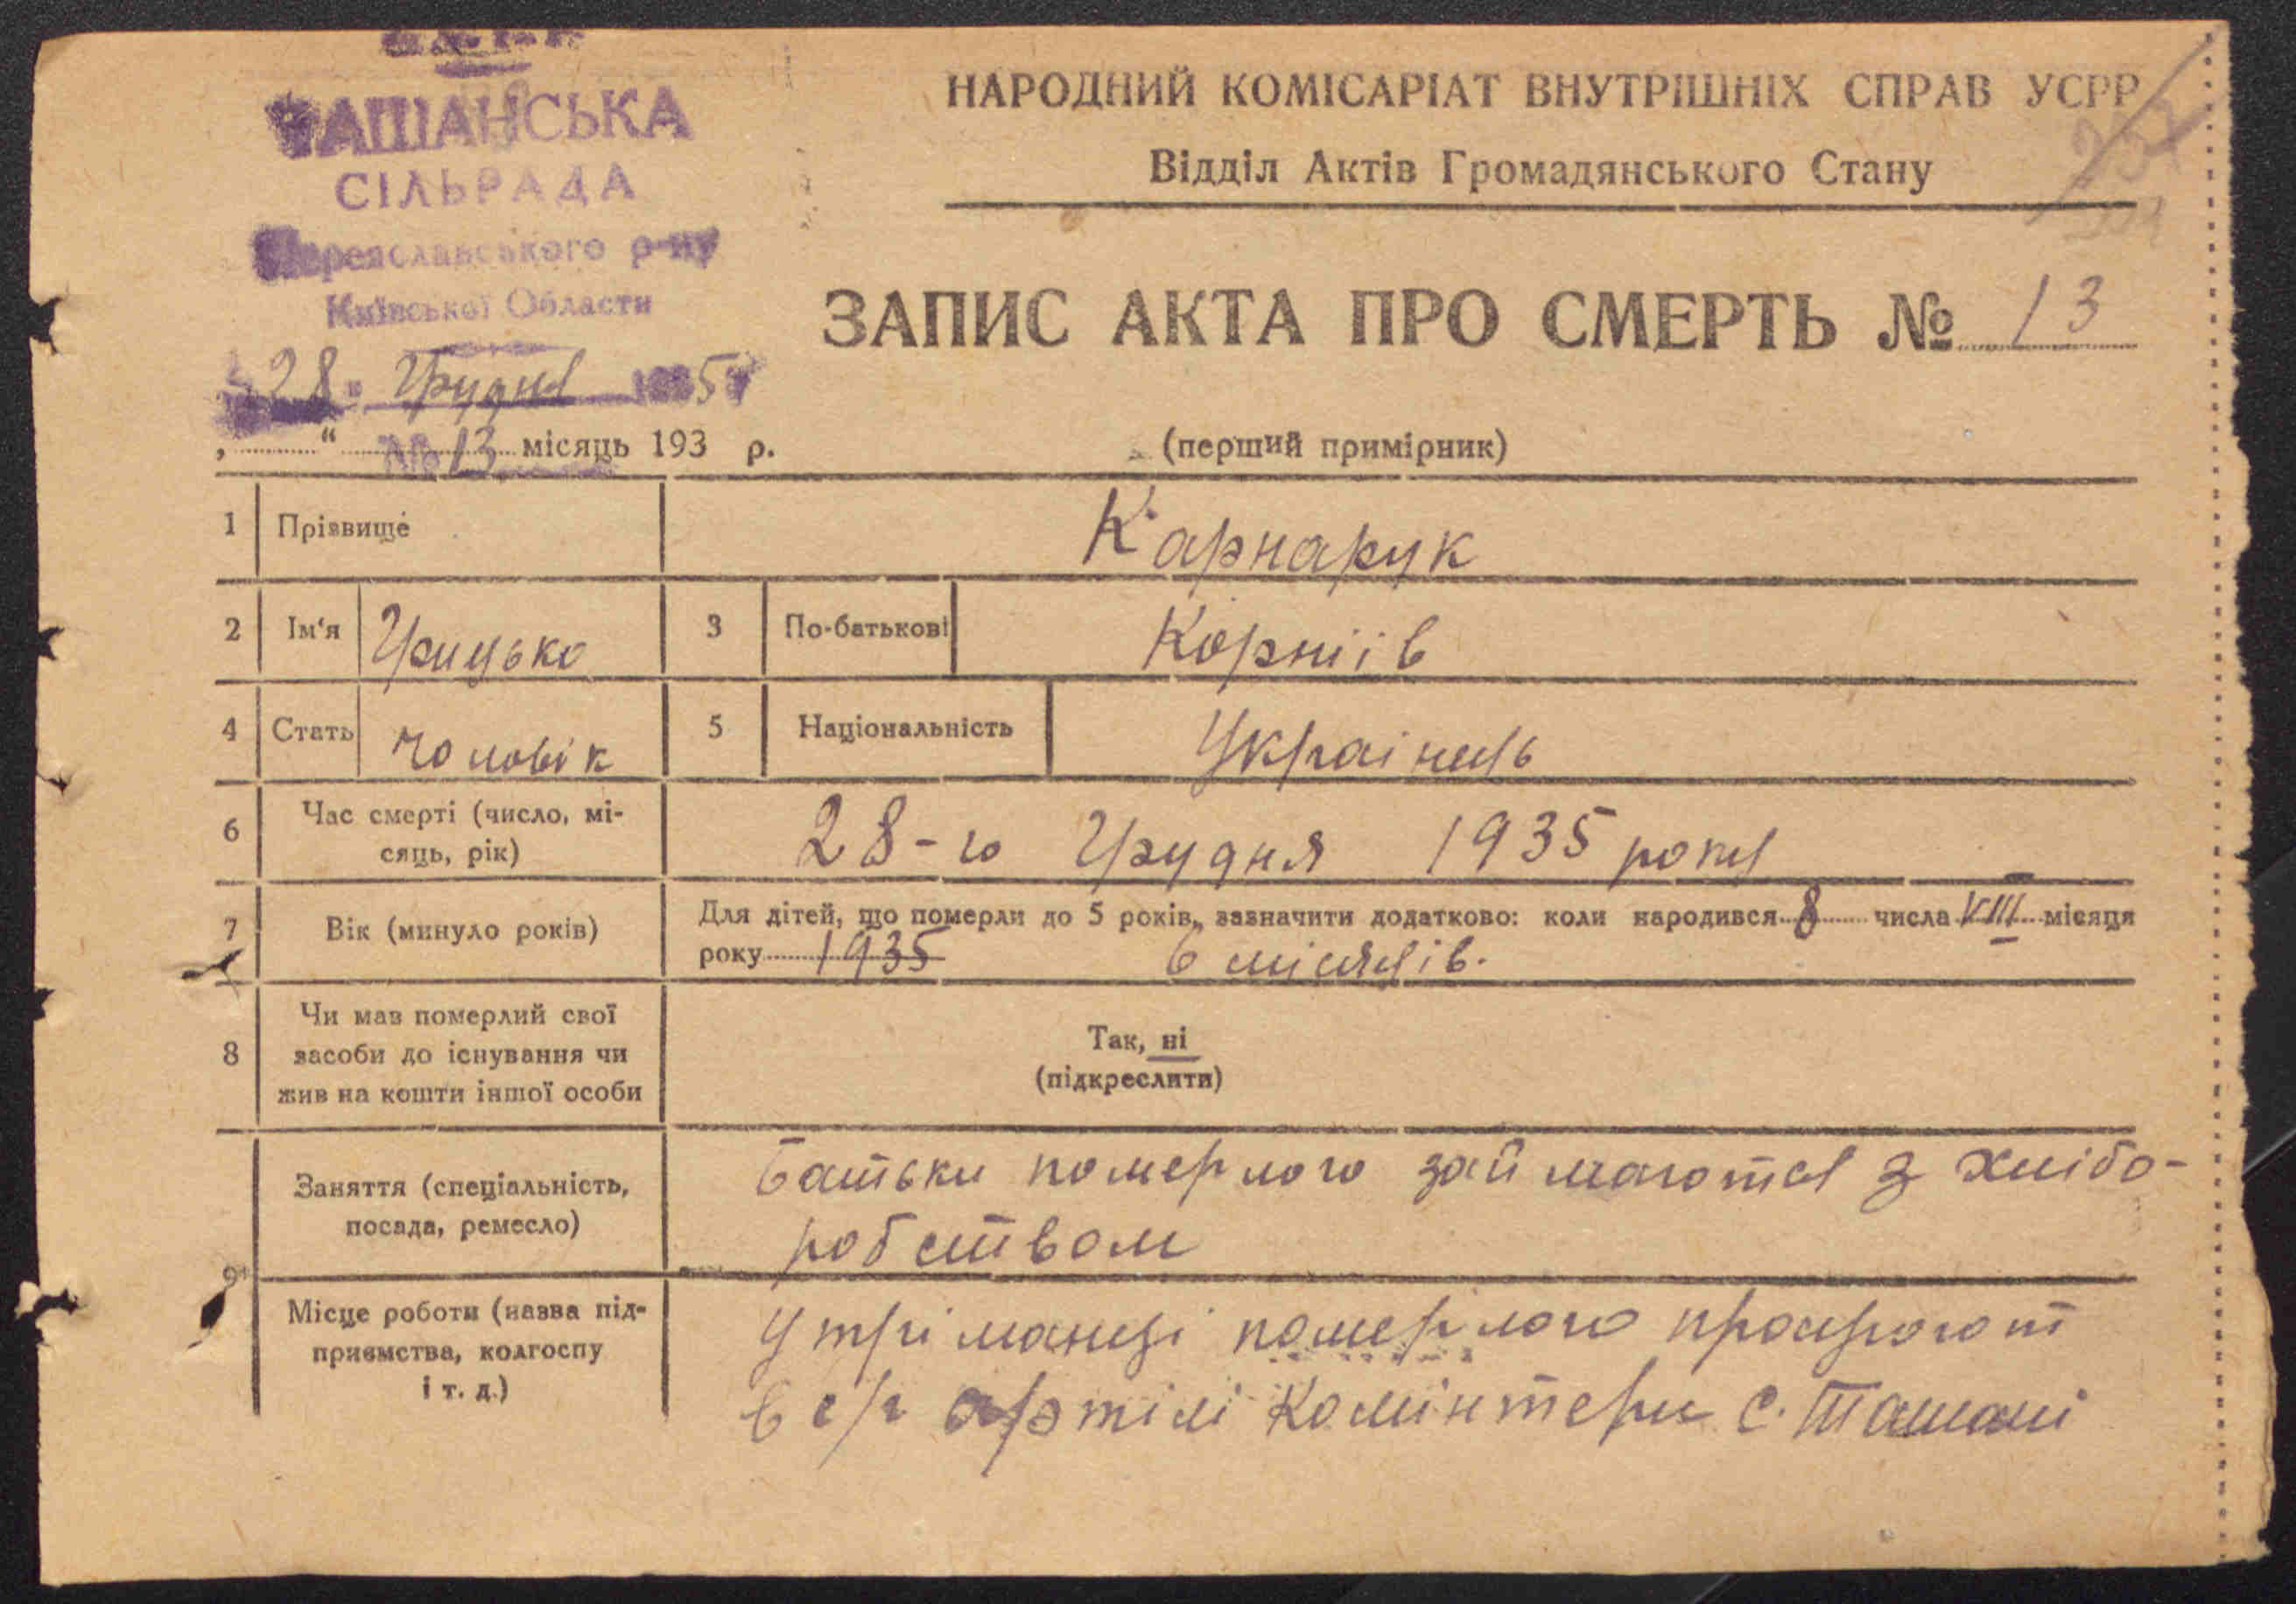 УСРР
ТАШАНСЬКА
СІЛЬРАДА
Переяславського р-ну
Київської Области
28 Грудня 1935 р
№ 13
„ “ місяць 193 р.
НАРОДНИЙ КОМІСАРІАТ ВНУТРІШНІХ СПРАВ УСРР
Відділ Актів Громадянського Стану
ЗАПИС АКТА ПРО СМЕРТЬ № 13
(перший примірник)
1 Прізвище Карнарук
2 Ім'я Грицько 3 По-батькові Корніів
4 Стать чоловік 5 Національність Украінець
6 Час смерті (число, мі-
сяць, рік) 28-го Грудня 1935 року
7 Вік (минуло років) Для дітей, що померли до 5 років, зазначити додатково: коли народився 8 числа VIII місяця
року 1935 6 місяців.
8 Чи мав померлий свої
засоби до існування чи
жив на кошти іншої особи
Так, ні
(підкреслити)
9 Заняття (спеціальність,
посада, ремесло)
батьки померлого займаются з хлібо-
робством
Місце роботи (назва під-
приємства, колгоспу
і т. д.)
утріманці померлого працюют
в с/г артілі Комінтерн с. Ташані